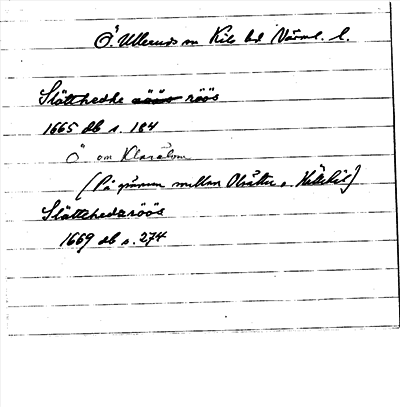 Ö. Ulleruds sn Kils hd Värml. l.
Slätthedke röös
1665 db s. 184
Ö om Klarälven
(På gränsen mellan Olsäter o.
Slätthedzröös
1669 db s. 274